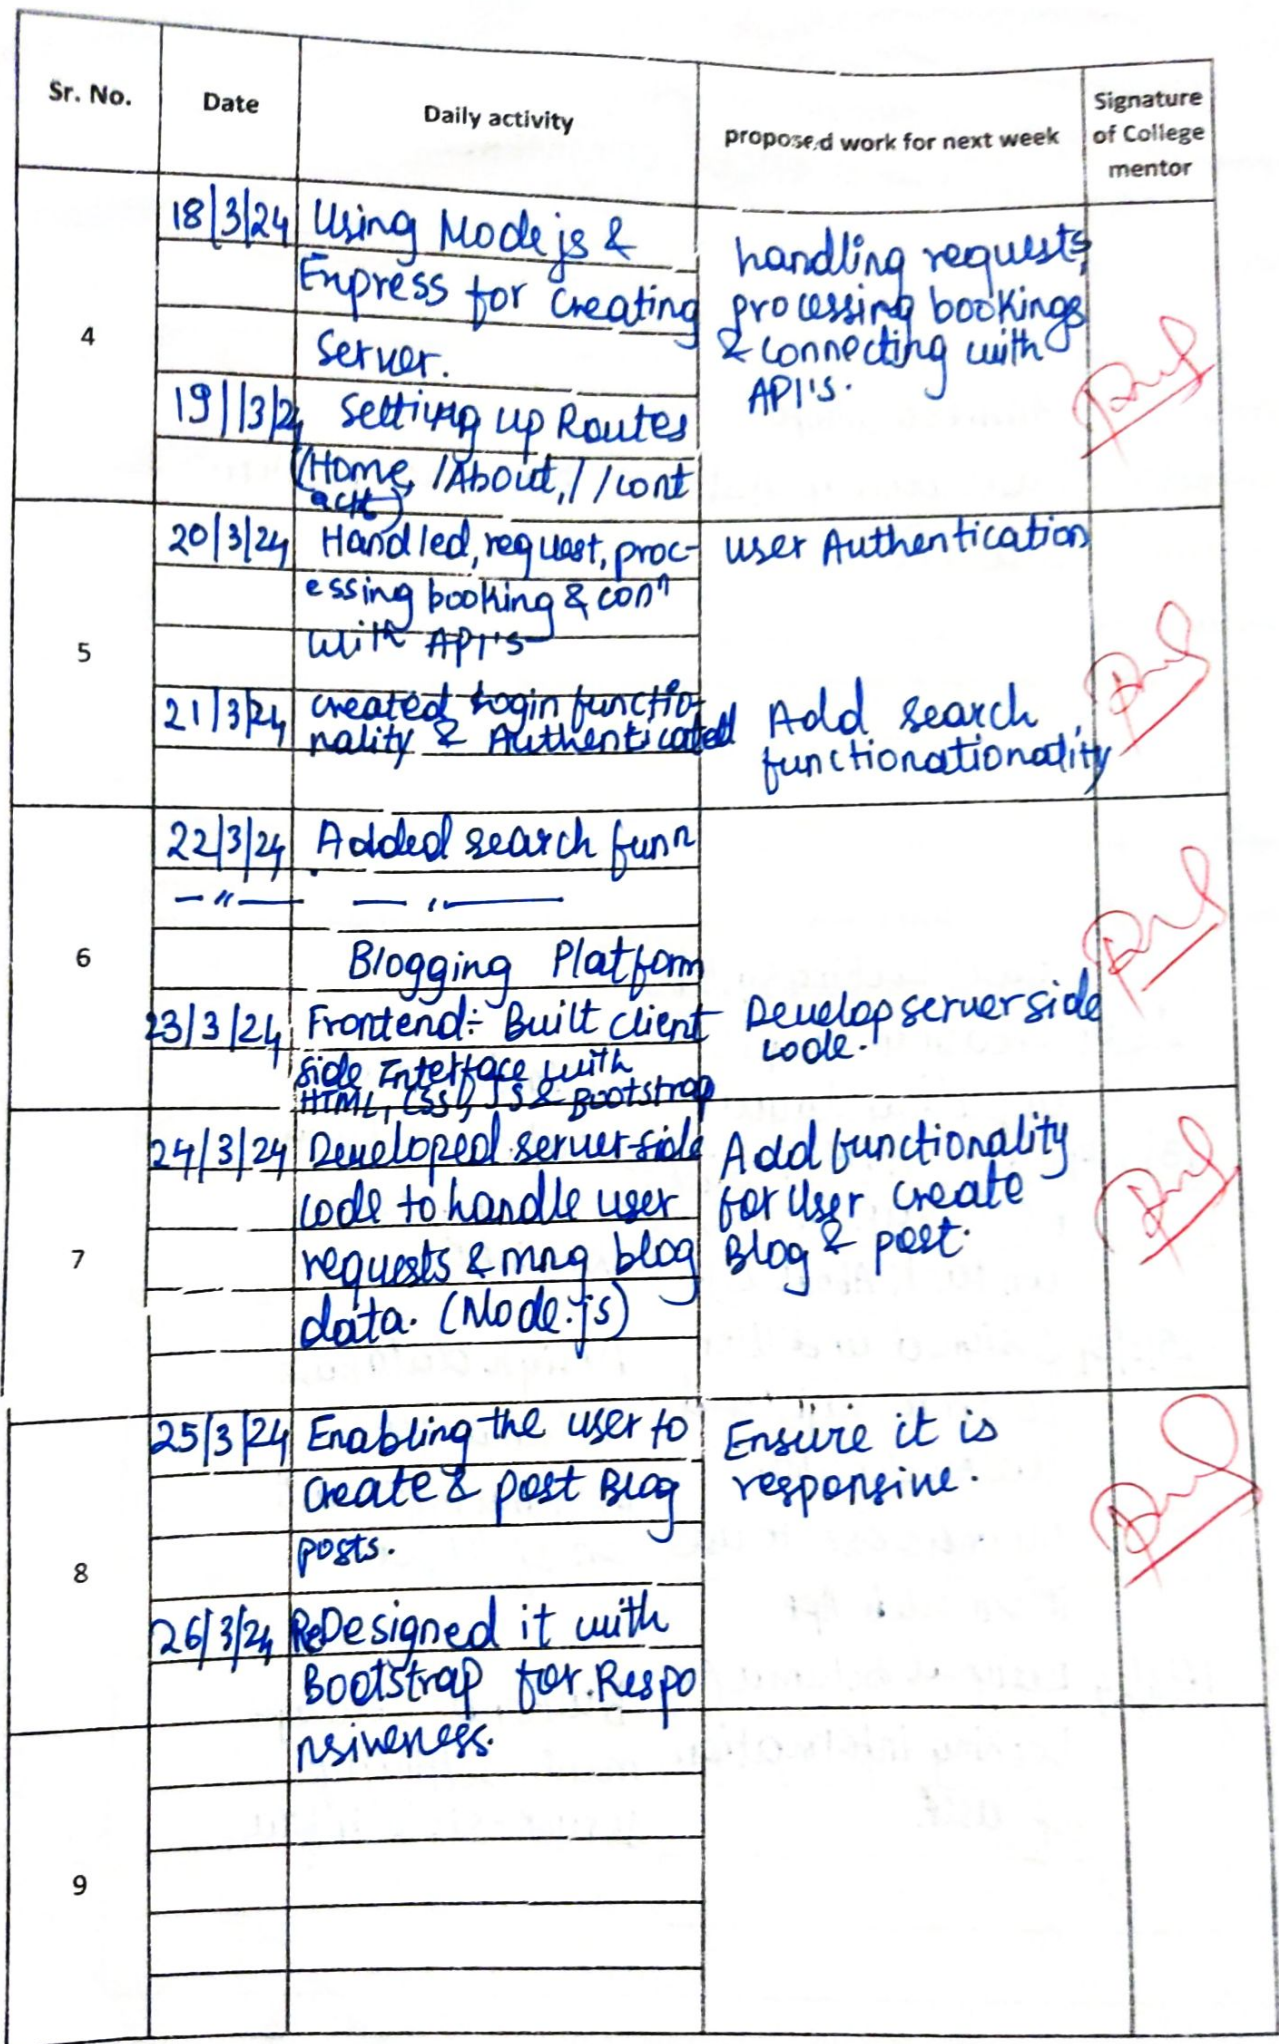 Sr. No. Date Daily activity proposed work for next week Signature of College mentor
4
18/3/24 Using Node js &
Express for creating
server.
handling requests,
processing bookings
& connecting with
API's.
19/3/24 Setting up Routes
(Home, /About, / /cont
act)
5
20/3/24 Handled, request, proc-
essing booking & conn
with API's
user Authentication
21/3/24 created Login functio-
nality & Authenticated
Add search
functionationality
6
22/3/24 Added search funn
— " — — " —
Blogging Platform
23/3/24 Frontend:- Built client
side Interface with
HTML, CSS, JS & Bootstrap
Develop server side
code.
7
24/3/24 Developed server-side
code to handle user
requests & mng blog
data. (Node.js)
Add functionality
for User create
Blog & post.
8
25/3/24 Enabling the user to
create & post Blog
posts.
Ensure it is
responsive.
26/3/24 ReDesigned it with
Bootstrap for. Respo
nsiveness.
9